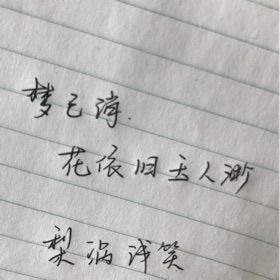 梦已消.
花依旧主人渺
梨涡浅笑